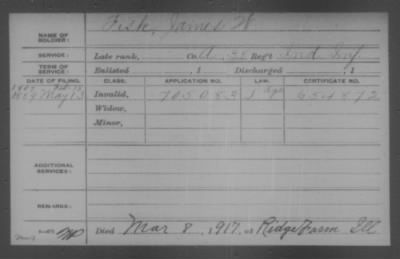 Fisk, James W
NAME OF SOLDIER:
SERVICE: Late rank, Co. 38 Reg't Ind Inf
TERM OF SERVICE: Enlisted , 1 Discharged , 1
DATE OF FILING. CLASS. APPLICATION NO. LAW. CERTIFICATE NO.
1889 May 13 Invalid, 705083 654812
Widow,
Minor,
ADDITIONAL SERVICES:
REMARKS:
Died Mar 8, 1917, at Ridge Farm Ill